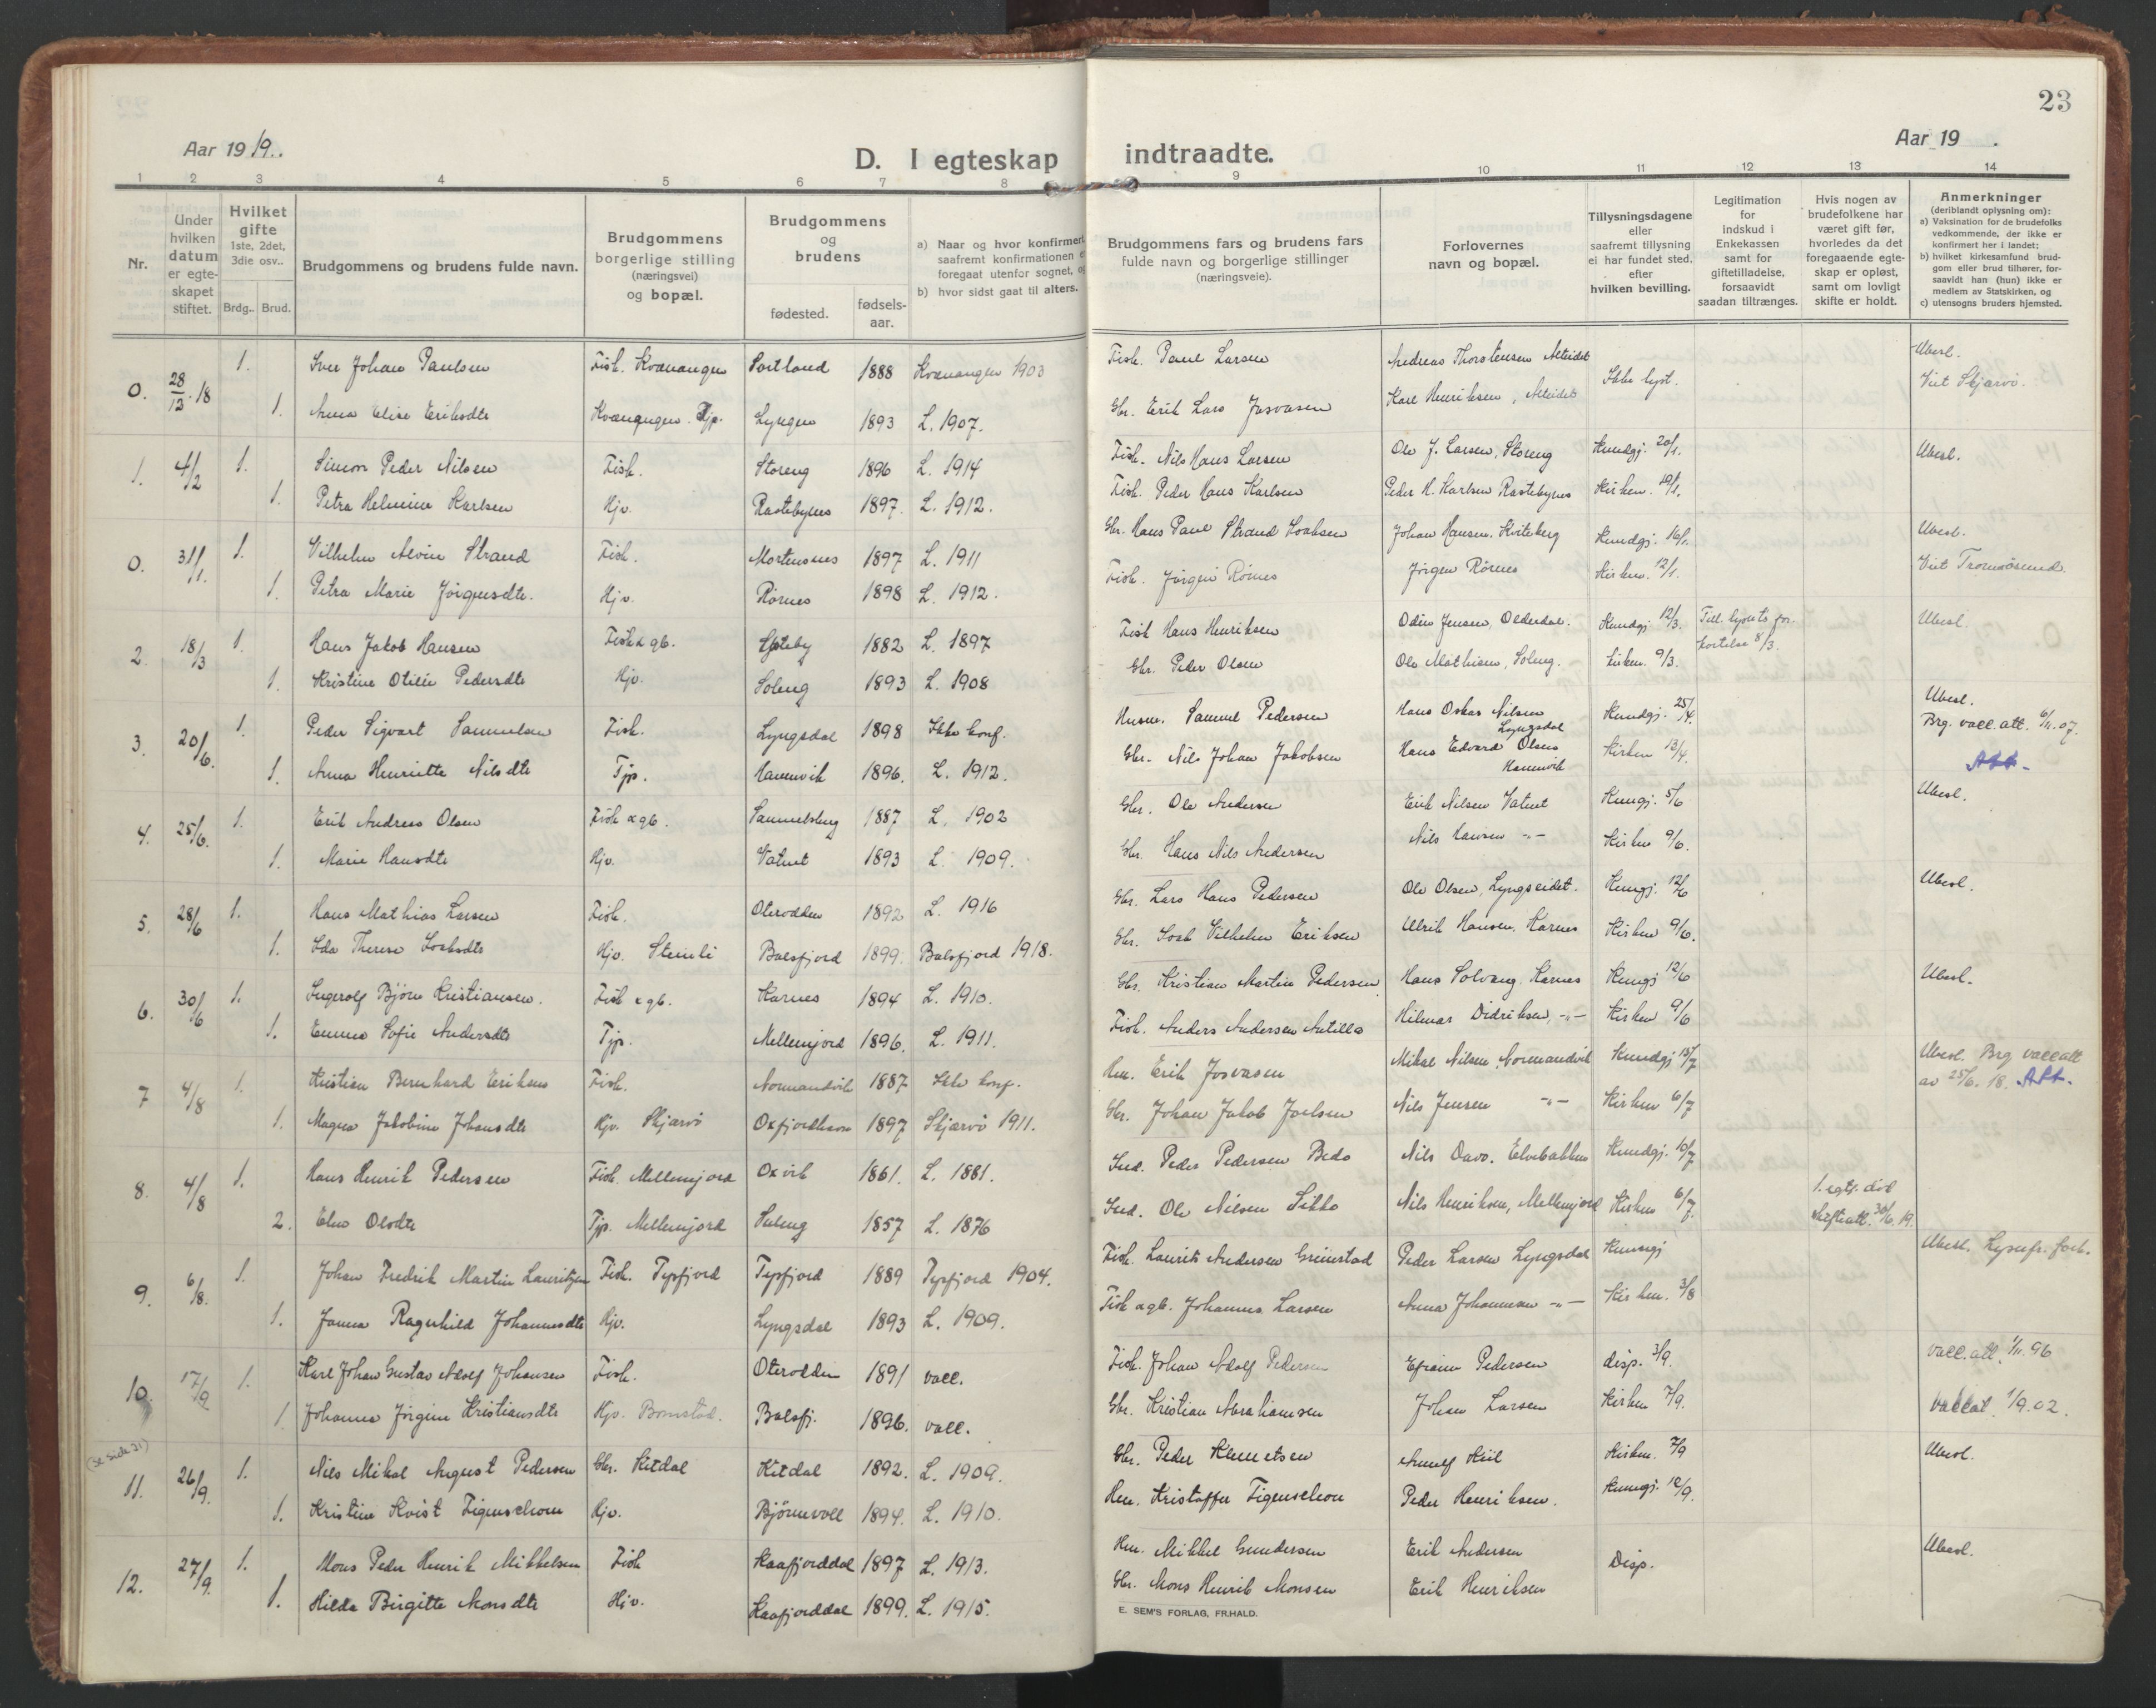 23
Aar 1919.
Aar 19 .
D. I egteskap indtraadte.
1 2 3 4 5 6 7 8 9 10 11 12 13 14
Nr.
Under hvilken datum er egteskapet stiftet.
Hvilket gifte 1ste, 2det, 3die osv..
Brdg.. Brud.
Brudgommens og brudens fulde navn.
Brudgommens borgerlige stilling (næringsvei) og bopæl.
Brudgommens og brudens
fødested.
fødsels-aar.
a) Naar og hvor konfirmert, saafremt konfirmationen er foregaat utenfor sognet, og
b) hvor sidst gaat til alters.
Brudgommens fars og brudens fars fulde navn og borgerlige stillinger (næringsveie).
Forlovernes navn og bopæl.
Tillysningsdagene eller saafremt tillysning ei har fundet sted, efter hvilken bevilling.
Legitimation for indskud i Enkekassen samt for giftetilladelse, forsaavidt saadan tiltrænges.
Hvis nogen av brudefolkene har været gift før, hvorledes da det foregaaende egteskap er opløst, samt om lovligt skifte er holdt.
Anmerkninger (deriblandt oplysning om):
a) Vaksination for de brudefolks vedkommende, der ikke er konfirmert her i landet;
b) hvilket kirkesamfund brudgom eller brud tilhører, forsaavidt han (hun) ikke er medlem av Statskirken, og
c) utensogns bruders hjemsted.
0. 28/12.18 1. Iver Johan Paulsen Fisk. Kvænangen Sortland 1888 Kvænangen 1903 Fisk. Paul Larsen Andreas Thorstensen Alteidet Ikke lyst. Ubesl.
1. Anna Elise Eriksdtr Kvænangen. Tjp. Lyngen 1893 L. 1907. Gbr. Erik Lars Josvasen Karl Henriksen, Alteidet Viet Skjærvö.
1. 4/2 1. Simon Peder Nilsen Fisk. Storeng 1896 L. 1914 Fisk. Nils Hans Larsen Ole J. Larsen, Storeng Kundgj. 20/1. Ubesl.
1. Petra Helmine Karlsen Hjv. Rastebynes 1897. L. 1912. Fisk. Peder Hans Karlsen Peder H. Karlsen Rastebynes Kirken. 19/1.
0. 31/1. 1. Vilhelm Alvin Strand Fisk. Mortensnes 1897 L. 1911 Gbr. Hans Paul Strand Isaksen Johan Hansen. Kviteberg Kundgj. 16/1. Ubesl.
1. Petra Marie Jörgensdtr. Hjv. Rörnes 1898 L. 1912. Fisk. Jörgen Rörnes Jörgen Rörnes Kirken. 12/1. Viet Tromsösund.
2. 18/3 1. Hans Jakob Hansen Fisk & gb. 1882 L. 1897 Fisk Hans Henriksen Odin Jensen, Olderdal. Kundgj 12/3. Till. lysnts for- Ubesl.
1. Kristine Otilie Pedersdtr Hjv. Soleng 1893 L. 1908 Gbr. Peder Olsen Ole Mathisen, Soleng. Kirken. 9/3. kortelse 8/3.
3. 20/6. 1. Peder Sigvart Samuelsen Fisk. Lyngsdal 1898 Ikke konf. Husm. Samuel Pedersen Hans Oskar Nilsen Lyngsdal Kundgj. 25/4. Ubesl. Brg. vacc. att. 6/11.07.
1. Anna Henriette Nilsdtr Tjp. Havnnvik 1896. L. 1912. Gbr. Nils Johan Jakobsen Hans Edvard Olsen Havnnvik Kirken 13/4. Att.
4. 25/6. 1. Erik Andreas Olsen Fisk & gb. Samuelsberg 1887 L. 1902 Gbr. Ole Andersen Erik Nilsen Vatnet Kungj. 5/6 Ubesl.
1. Marie Hansdtr Hjv. Vatnet 1893 L. 1909. Gbr. Hans Nils Andersen Nils Hansen -"- Kirken 9/6.
5. 28/6 1. Hans Mathias Larsen Fisk. Oterodden 1892 L. 1916 Gbr. Lars Hans Pedersen Ole Olsen, Lyngseidet. Kungj. 12/6 Ubesl.
1. Ida Therese Isaksdtr Hjv. Steinli Balsfjord 1899. Balsfjord 1918. Gbr. Isak Vilhelm Eriksen Ulrik Hansen, Karnes Kirken 9/6.
6. 30/6 1. Ingerolf Björn Kristiansen. Fisk & gb. Karnes 1894 L. 1910. Gbr. Kristian Martin Pedersen Hans Solvang. Karnes Kungj 12/6 Ubesl.
1. Emma Sofie Andersdtr Tjp. Mellemjord 1896. L. 1911. Fisk. Anders Andersen Antilla Hilmar Didriksen, -"- Kirken 9/6
7 4/8 1. Kristian Bernhard Eriksen Fisk. Normandvik 1887 Ikke konf. Hm. Erik Josvasen Mikal Nilsen, Normandvik Kundgj 15/7 Ubesl. Brg vacc att
1. Magna Jakobine Johansdtr Hjv. Skjærvö Oxfjordhavn 1897 Skjærvö 1911. Gbr. Johan Jakob Joelsen Nils Jensen -"- Kirken 6/7 av 25/6. 18. Att.
8. 4/8 1. Hans Henrik Pedersen Fisk. Mellemjord Oxvik 1861. L. 1881. Ind. Peder Pedersen Beds Nils Davo. Elvebakken Kundgj. 10/7
2. Elen Olsdtr Tjp. Mellemjord Soleng 1857 L. 1876 Ind. Ole Nilsen Sikko Nils Henriksen, Mellemjord Kirken 6/7 1. egtf. död Skifteatt. 30/6. 19.
9. 6/8. 1. Johan Fredrik Martin Lauritzen Fisk. Tysfjord Tysfjord 1889 Tysfjord 1904. Fisk. Laurits Andersen Grimstad Peder Larsen Lyngsdal Kunngj Ubesl. Lysnfr. fork.
1. Janna Ragnhild Johannesdtr Hjv. Lyngsdal 1893 L. 1909. Fisk & gb. Johannes Larsen Anna Johannesen -"- Kirken. 3/8
10. 17/9 1. Karl Johan Gustav Adolf Johansen Fisk. Oterodden 1891 vacc. Fisk. Johan Adolf Pedersen Efraim Pedersen disp. 3/9. vacc. att. 1/11. 96
1. Johanna Jörgine Kristiansdtr Hjv. Bomstad. Balsfj. 1896. vacc. Gbr. Kristian Abrahamsen Johan Larsen Kirken 7/9. vaccat. 1/9.02.
(se side 21)
11. 26/9. 1. Nils Mikal August Pedersen Gbr. Kitdal Kitdal 1892. L. 1909. Gbr. Peder Klemetsen Kiil Kirken. 7/9 Ubesl.
1. Kristine Kvist Figenschou Hjv. Björnevoll 1894. L. 1910. Hm. Kristoffer Figenschou Peder Henriksen. Kunngj. 12/9.
12. 27/9. 1. Mons Peder Henrik Mikkelsen Fisk Kaafjorddal 1897 L. 1913. Hm. Mikkel Gundersen Erik Andersen Disp. Ubesl.
1. Hilda Birgitte Monsdtr Hjv. Kaafjorddal 1899. L. 1915. Gbr. Mons Henrik Monsen Erik Henriksen
E. SEM'S FORLAG, FR.HALD.